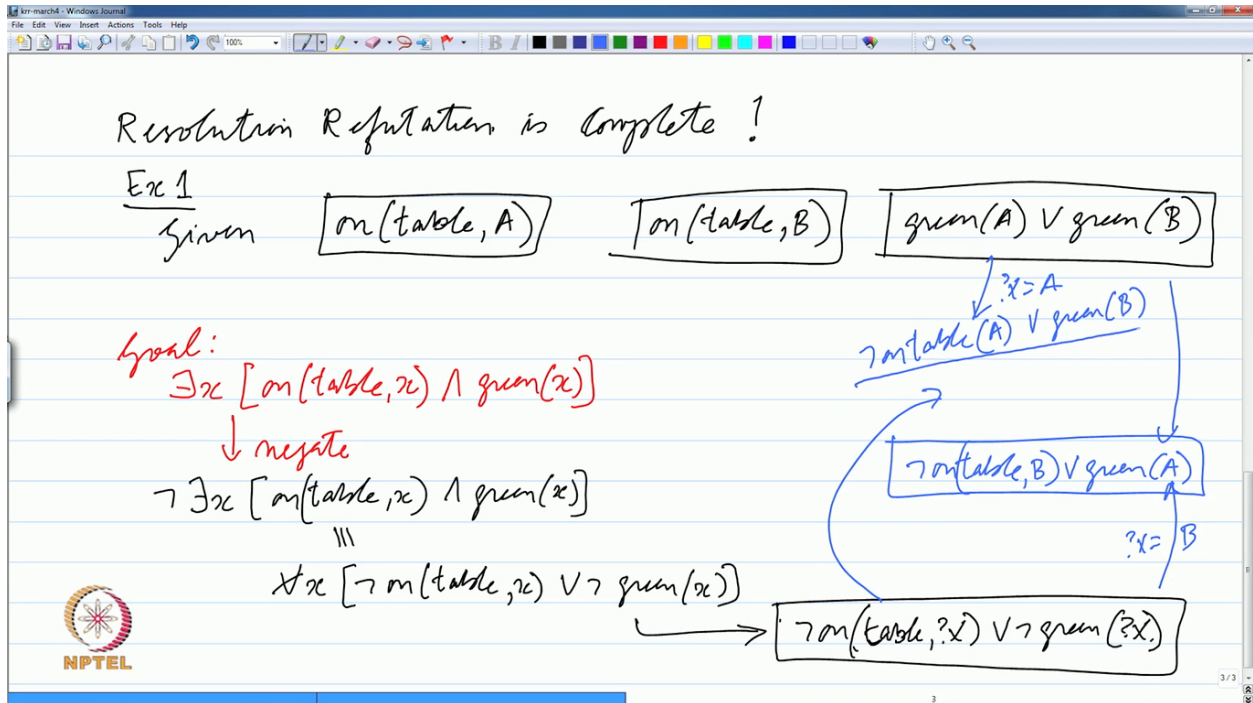 krr-march4 - Windows Journal
File Edit View Insert Actions Tools Help
100%
B I
Resolution Refutation is Complete !
Ex 1
Given on(table, A) on(table, B) green(A) ∨ green(B)
?x = A
¬ontable(A) ∨ green(B)
Goal:
∃x [on(table, x) ∧ green(x)]
↓ negate
¬∃x [on(table, x) ∧ green(x)]
¬on(table, B) ∨ green(A)
≡
?x = B
∀x [¬on(table, x) ∨ ¬green(x)]
¬on(table, ?x) ∨ ¬green(?x)
NPTEL
3 / 3
3